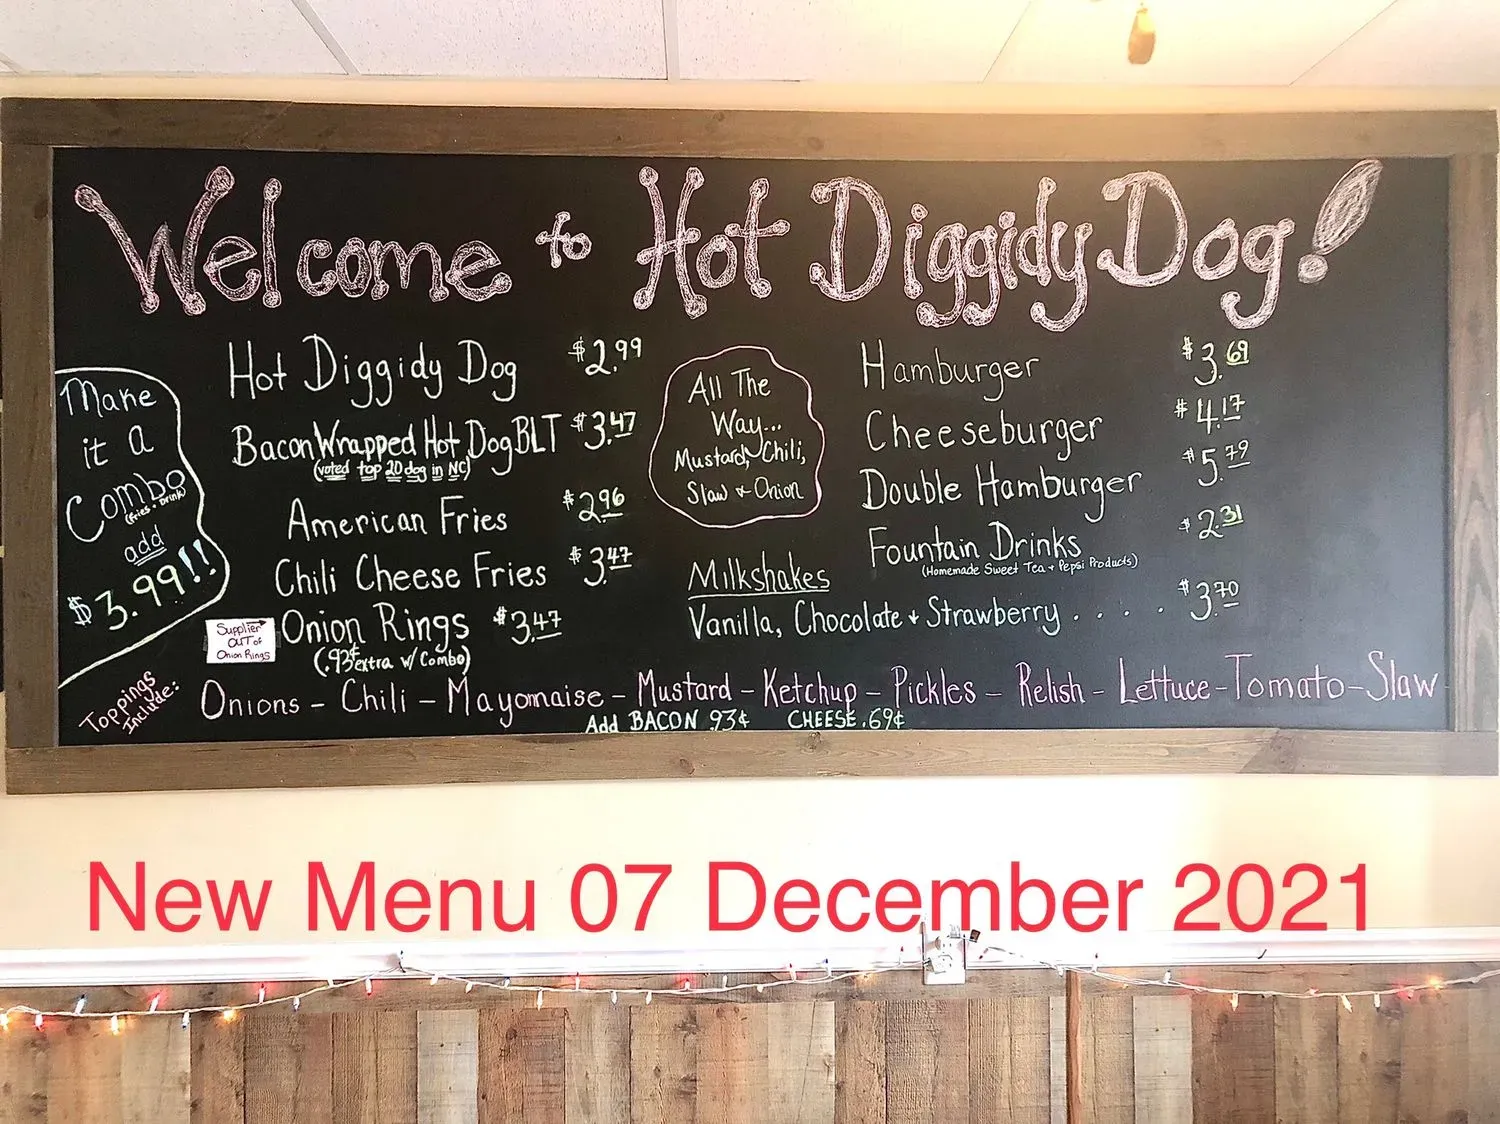 Welcome to Hot Diggidy Dog!
Make
it a
Combo
(fries + Drink)
add
$3.99!!
Hot Diggidy Dog $2.99
Bacon Wrapped Hot Dog BLT $3.47
(voted top 20 dog in NC)
American Fries $2.96
Chili Cheese Fries $3.47
Supplier
OUT of
Onion Rings
Onion Rings $3.47
(.93¢ extra w/ Combo)
All The
Way...
Mustard, Chili,
Slaw + Onion
Hamburger $3.69
Cheeseburger $4.17
Double Hamburger $5.79
Fountain Drinks $2.31
(Homemade Sweet Tea + Pepsi Products)
Milkshakes
Vanilla, Chocolate + Strawberry . . . . $3.70
Toppings
Include:
Onions - Chili - Mayonnaise - Mustard - Ketchup - Pickles - Relish - Lettuce - Tomato - Slaw
Add BACON .93¢ CHEESE .69¢
New Menu 07 December 2021